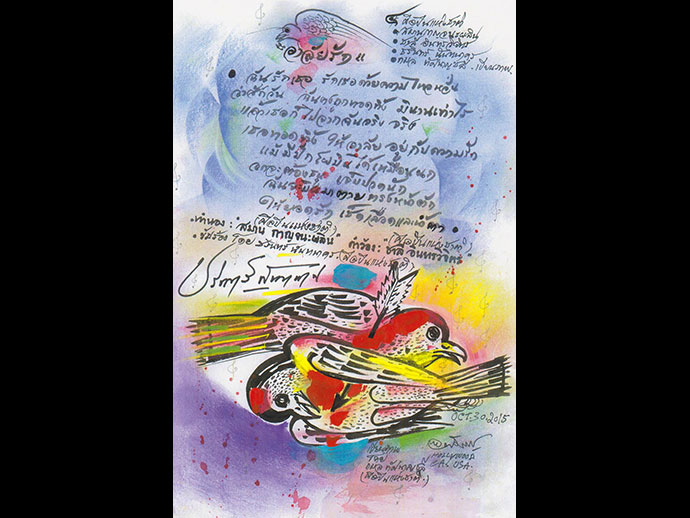 "อาลัยรัก"
ศิลปินแห่งชาติ
• สมาน กาญจนะผลิน
• ชาลี อินทรวิจิตร
• ชรินทร์ นันทนาคร
• กมล ทัศนาญชลี . เขียนภาพ.
• ฉันรักเธอ รักเธอด้วยความไหวหวั่น
ว่าสักวัน ฉันคงถูกทอดทิ้ง มินานเท่าไร
แล้วเธอก็ไปจากฉันจริง จริง
เธอทอดทิ้ง ให้อาลัย อยู่กับความรัก
แม้มีปีก โผบินได้ เหมือนนก
อกจะต้องธนู เจ็บปวดนัก
ฉันจะบินมาตายตรงหน้าตัก
ให้ยอดรัก เช็ดเลือดและน้ำตา •
• ทำนอง : สมาน กาญจนะผลิน (ศิลปินแห่งชาติ)
คำร้อง : ชาลี อินทรวิจิตร (ศิลปินแห่งชาติ)
• ขับร้อง โดย ชรินทร์ นันทนาคร (ศิลปินแห่งชาติ)
OCT.30.2015
เขียนภาพ
โดย
กมล ทัศนาญชลี
(ศิลปินแห่งชาติ.)
HOLLYWOOD
CAL USA.